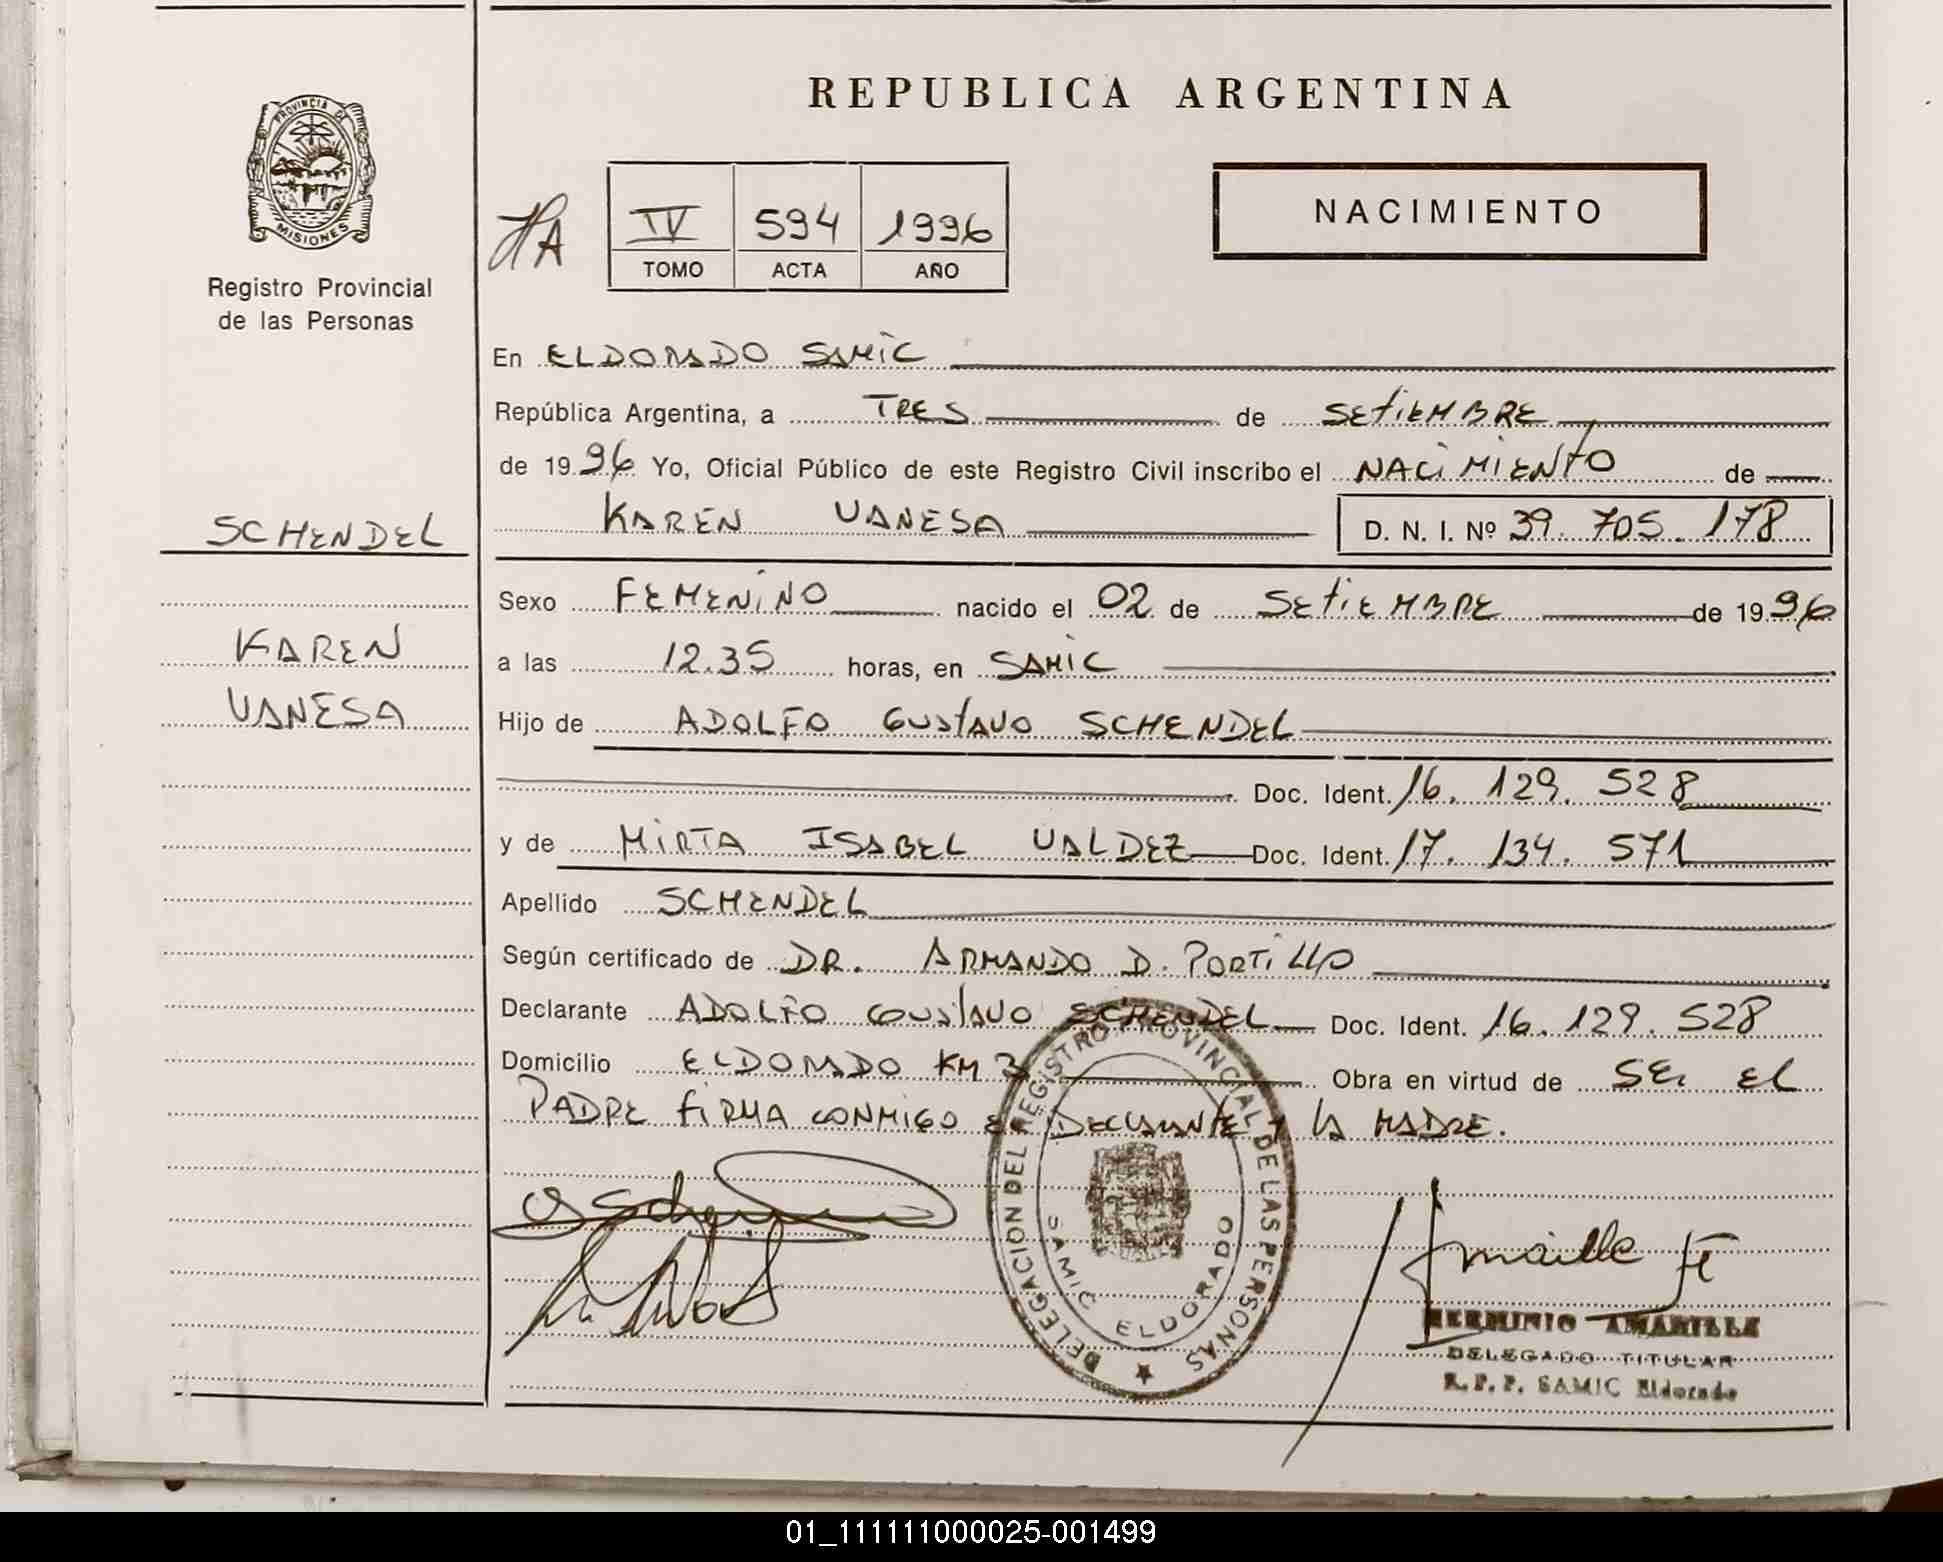 REPUBLICA ARGENTINA
PROVINCIA DE
MISIONES
Registro Provincial
de las Personas
HA
IV 594 1996
TOMO ACTA AÑO
NACIMIENTO
En ELDORADO SAMIC
República Argentina, a TRES de SETIEMBRE
de 1996 Yo, Oficial Público de este Registro Civil inscribo el NACIMIENTO de
KAREN VANESA D. N. I. Nº 39.705.178
SCHENDEL
KAREN
VANESA
Sexo FEMENINO nacido el 02 de SETIEMBRE de 1996
a las 12.35 horas, en SAMIC
Hijo de ADOLFO GUSTAVO SCHENDEL
Doc. Ident. 16.129.528
y de MIRTA ISABEL VALDEZ Doc. Ident. 17.134.571
Apellido SCHENDEL
Según certificado de DR. ARMANDO D. PORTILLO
Declarante ADOLFO GUSTAVO SCHENDEL Doc. Ident. 16.129.528
Domicilio ELDORADO KM 3 Obra en virtud de SER EL
PADRE FIRMA CONMIGO EL DECLARANTE Y LA MADRE.
DELEGACION DEL REGISTRO PROVINCIAL DE LAS PERSONAS
SAMIC ELDORADO
HERMINIO AMARILLA
DELEGADO TITULAR
R.P.P. SAMIC Eldorado
01_111111000025-001499